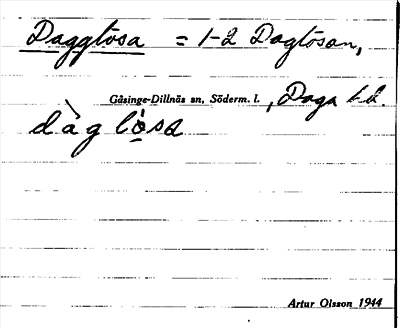 Dagglösa = 1-2 Daglösan,
Gåsinge-Dillnäs sn, Söderm. l., Daga hd.
dàg lò̱sa
Artur Olsson 1944